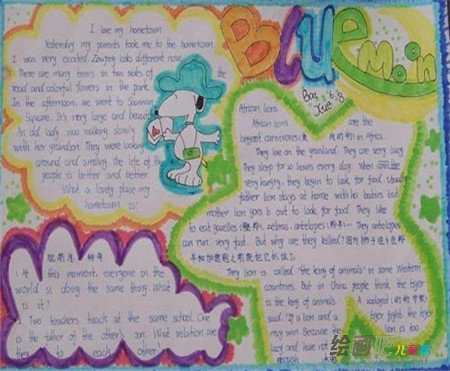 I love my hometown
Yesterday my parents took me to the hometown.
I was very excited. looks different now.
There are many trees in two sides of the
road and colorful flowers in the park.
In the afternoon, we went to
Square. It's very large and
An old lady was walking slowly
with her grandson. They were looking
around and smiling. the life of the
people is better and better.
What a lovely place my
hometown is!
BLUE
Moon
African lions
African lions are the
biggest carnivores in Africa.
They live on the grassland. They are very lazy.
They sleep for 20 hours every day. When
very hungry, they begin to look for food.
father lion stays at home with his babies, but
mother lion goes out to look for food. They like
to eat gazelles zebras, antelopes They antelopes
can run very fast. But why are they killed?
They lion is called "the king of animals" in some Western
Countries. But in China people think the tiger
is the king of animals. A zoologist
said: If a lion and a tiger fight. the tiger
may win. Because the lion is too
lazy and have not
enough
1. At this moment, everyone in the
world is doing the same thing. What
is it?
2. Two teachers teach at the same school. One
is the father of the other's son. What relation are
they to each other
绘画
儿童网